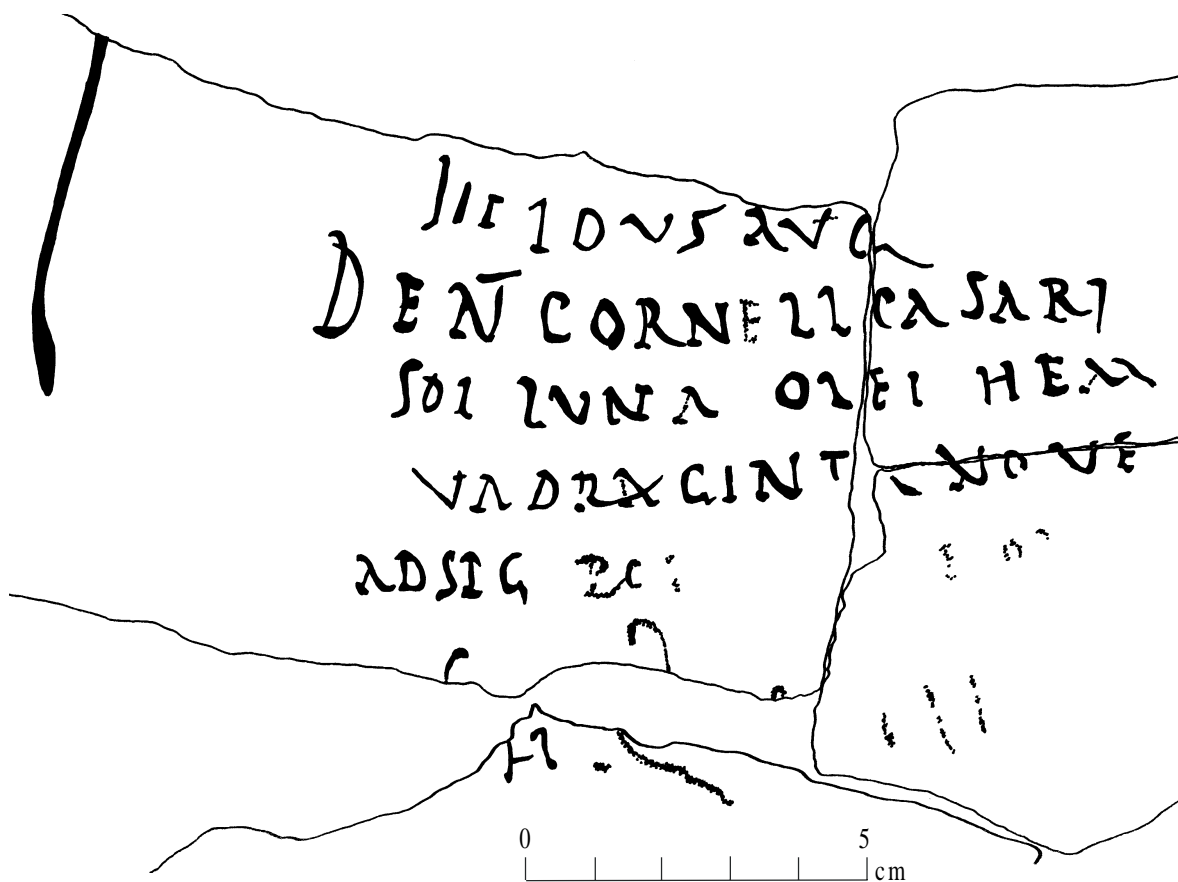 III IDVS AVG
DENT CORNELL CASARI
SOL LVNA OLEI HEM
VADRAGINTA NOVE
ADSIG
0 5
cm